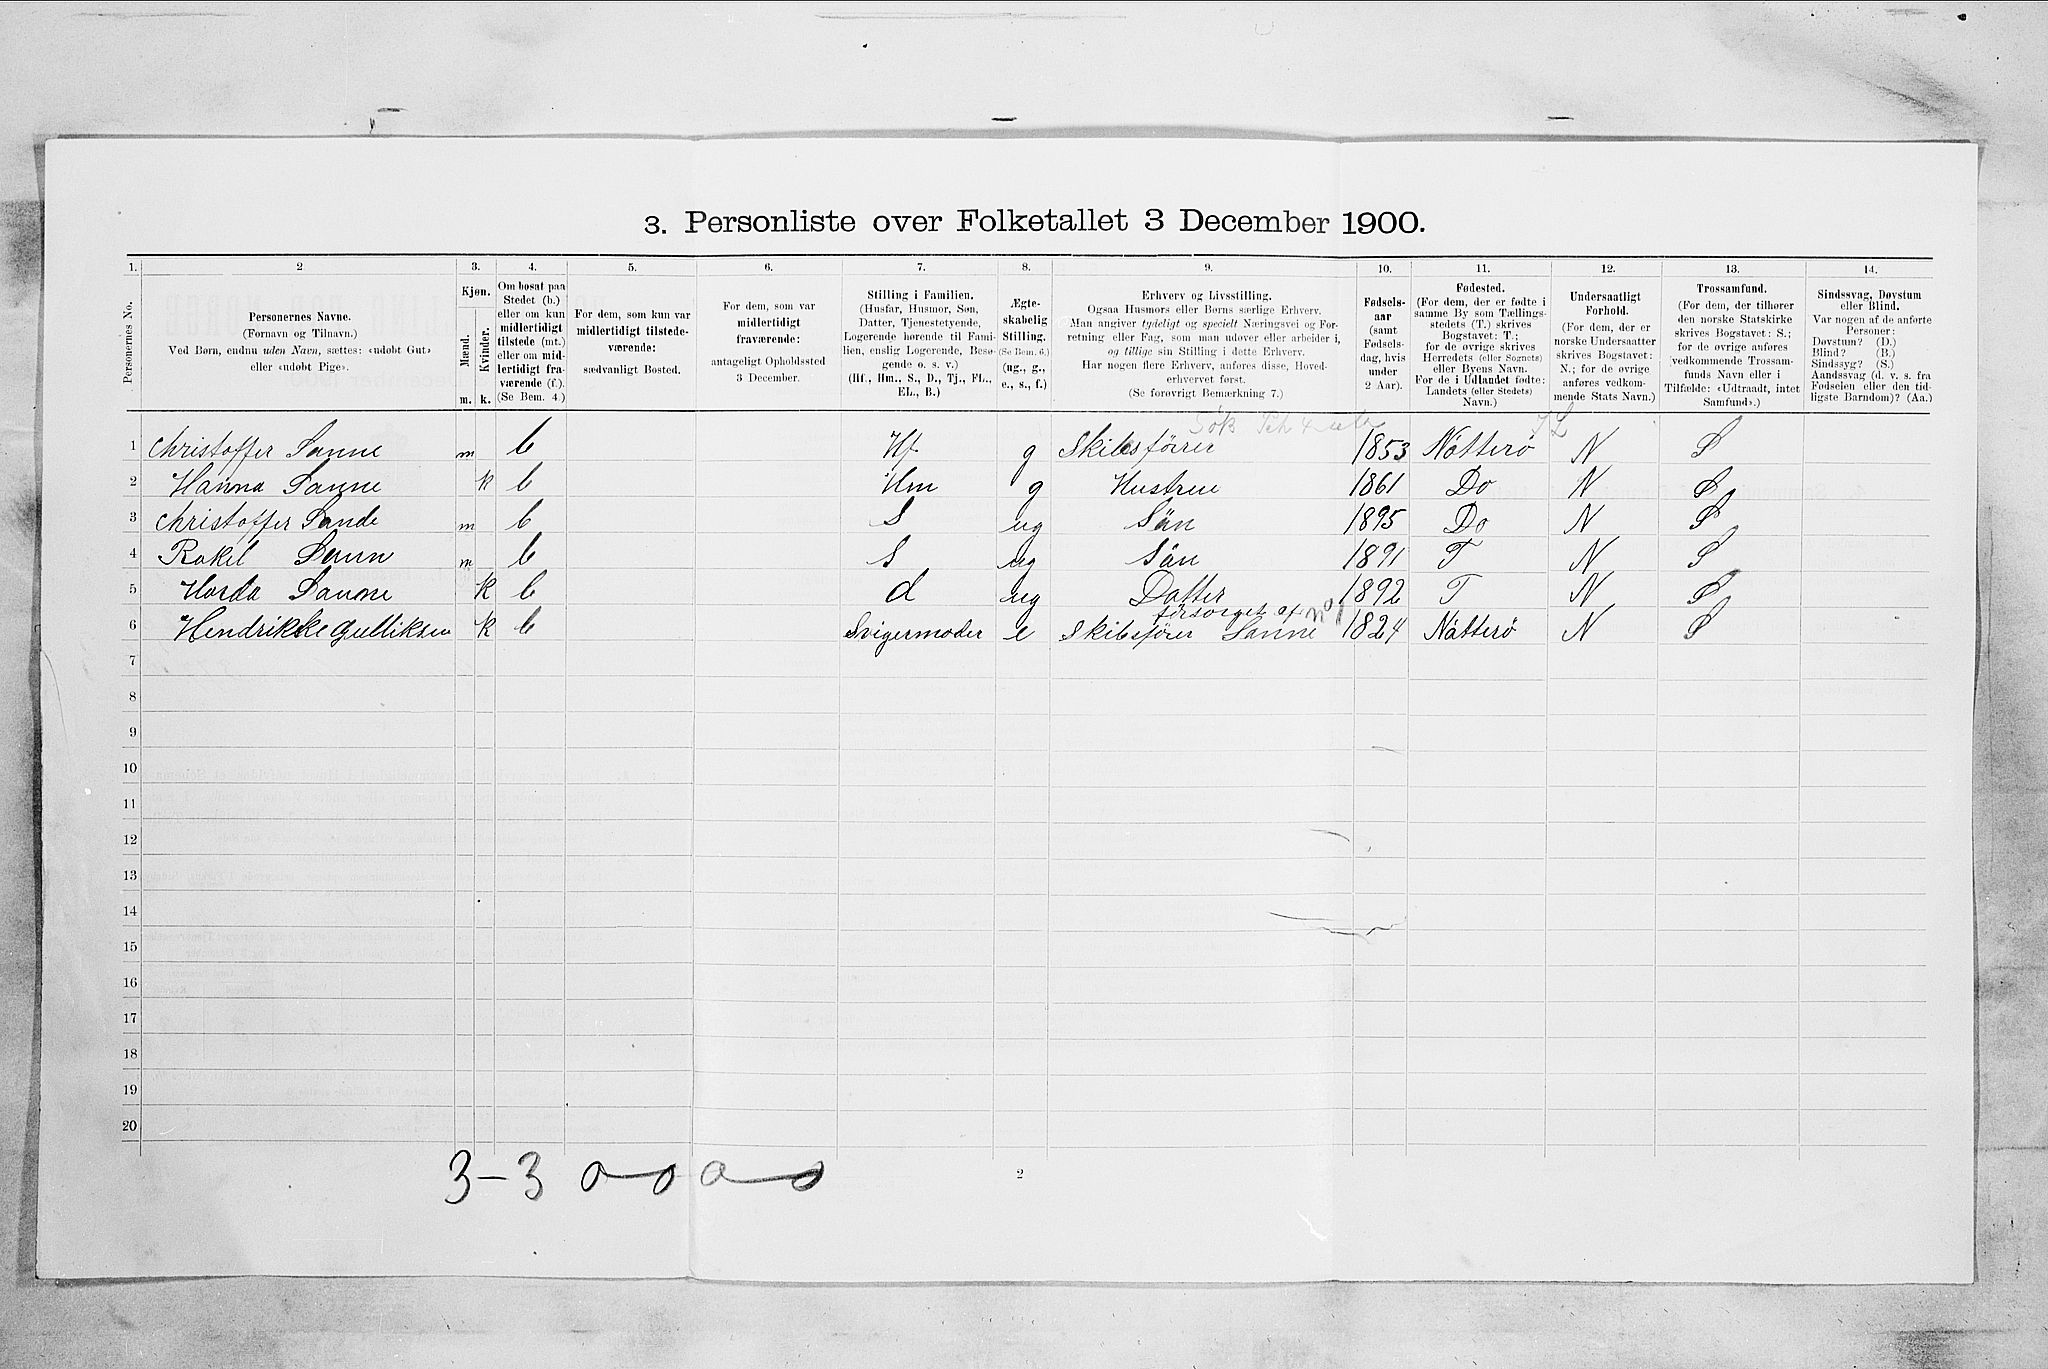 3. Personliste over Folketallet 3 December 1900.
1. 2 3. 4. 5. 6. 7. 8. 9. 10. 11. 12. 13. 14.
Personernes No.
Personernes Navne.
(Fornavn og Tilnavn.)
Ved Børn, endnu uden Navn, sættes: «udøbt Gut»
eller «udøbt Pige».
Kjøn.
Mænd.
Kvinder.
m. k.
Om bosat paa
Stedet (b.)
eller om kun
midlertidigt
tilstede (mt.)
eller om mid-
lertidigt fra-
værende (f.).
(Se Bem. 4.)
For dem, som kun var
midlertidigt tilstede-
værende:
sædvanligt Bosted.
For dem, som var
midlertidigt
fraværende:
antageligt Opholdssted
3 December.
Stilling i Familien.
(Husfar, Husmor, Søn,
Datter, Tjenestetyende,
Logerende hørende til Fami-
lien, enslig Logerende, Besø-
gende o. s. v.)
(Hf., Hm., S., D., Tj., FL.,
EL., B.)
Ægte-
skabelig
Stilling.
(Se Bem. 6.)
(ug., g.,
e., s., f.)
Erhverv og Livsstilling.
Ogsaa Husmors eller Børns særlige Erhverv.
Man angiver tydeligt og specielt Næringsvei og For-
retning eller Fag, som man udøver eller arbeider i,
og tillige sin Stilling i dette Erhverv.
Har nogen flere Erhverv, anføres disse, Hoved-
erhvervet først.
(Se forøvrigt Bemærkning 7.)
Fødsels-
aar
(samt
Fødsels-
dag, hvis
under
2 Aar).
Fødested.
(For dem, der er fødte i
samme By som Tællings-
stedets (T.) skrives
Bogstavet: T.;
for de øvrige skrives
Herredets (eller Sognets)
eller Byens Navn.
For de i Udlandet fødte:
Landets (eller Stedets)
Navn.)
Undersaatligt
Forhold.
(For dem, der er
norske Undersaatter
skrives Bogstavet:
N.; for de øvrige
anføres vedkom-
mende Stats Navn.)
Trossamfund.
(For dem, der tilhører
den norske Statskirke
skrives Bogstavet: S.;
for de øvrige anføres
vedkommende Trossam-
funds Navn eller i
Tilfælde: «Udtraadt, intet
Samfund».)
Sindssvag, Døvstum
eller Blind.
Var nogen af de anførte
Personer:
Døvstum? (D.)
Blind? (B.)
Sindssyg? (S.)
Aandssvag (d. v. s. fra
Fødselen eller den tid-
ligste Barndom)? (Aa.)
1 Christoffer Sanne m b Hf g Skibsfører 1853 Nötterö N S
2 Hanna Sanne k b Hm g Hustrue 1861 Do N S
3 Christoffer Sande m b S ug Sän 1895 Do N S
4 Rakel Sann m b S ug Sän 1891 T N S
5 Horda Sanne k b d ug Datter 1892 T N S
forsorget af no 1
6 Hendrikke Gulliksen k b Svigermoder e Skibsförer Sanne 1824 Nötterö N S
7
8
9
10
11
12
13
14
15
16
17
18
19
20
3-3 0-0 0-0
2